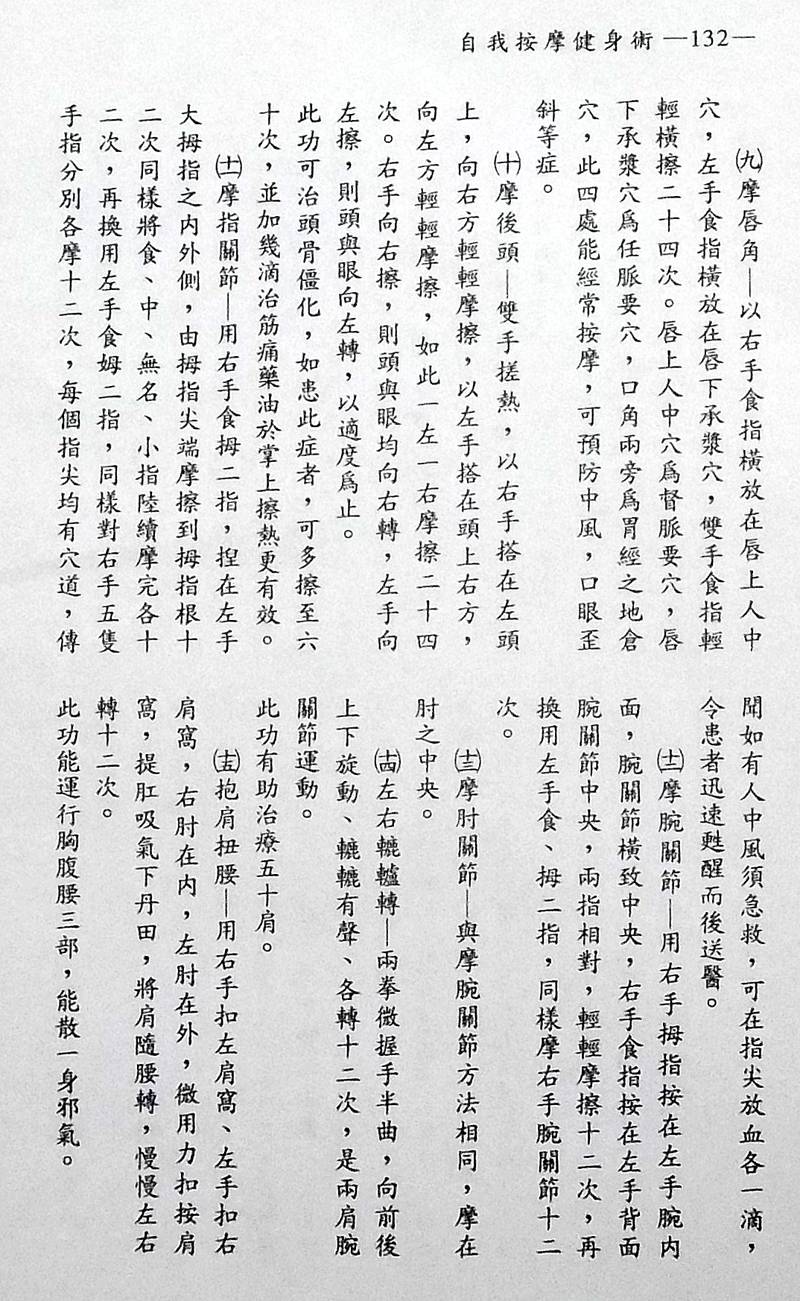 自我按摩健身術 —132—
㈨摩唇角—以右手食指橫放在唇上人中
穴，左手食指橫放在唇下承漿穴，雙手食指輕
輕橫擦二十四次。唇上人中穴爲督脈要穴，唇
下承漿穴爲任脈要穴，口角兩旁爲胃經之地倉
穴，此四處能經常按摩，可預防中風，口眼歪
斜等症。
㈩摩後頭—雙手搓熱，以右手搭在左頭
上，向右方輕輕摩擦，以左手搭在頭上右方，
向左方輕輕摩擦，如此一左一右摩擦二十四
次。右手向右擦，則頭與眼均向右轉，左手向
左擦，則頭與眼向左轉，以適度爲止。
此功可治頭骨僵化，如患此症者，可多擦至六
十次，並加幾滴治筋痛藥油於掌上擦熱更有效。
(十一)摩指關節—用右手食拇二指，揑在左手
大拇指之內外側，由拇指尖端摩擦到拇指根十
二次同樣將食、中、無名、小指陸續摩完各十
二次，再換用左手食姆二指，同樣對右手五隻
手指分別各摩十二次，每個指尖均有穴道，傳
聞如有人中風須急救，可在指尖放血各一滴，
令患者迅速甦醒而後送醫。
(十二)摩腕關節—用右手拇指按在左手腕內
面，腕關節橫致中央，右手食指按在左手背面
腕關節中央，兩指相對，輕輕摩擦十二次，再
換用左手食、拇二指，同樣摩右手腕關節十二
次。
(十三)摩肘關節—與摩腕關節方法相同，摩在
肘之中央。
(十四)左右轆轤轉—兩拳微握手半曲，向前後
上下旋動、轆轆有聲、各轉十二次，是兩肩腕
關節運動。
此功有助治療五十肩。
(十五)抱肩扭腰—用右手扣左肩窩、左手扣右
肩窩，右肘在內，左肘在外，微用力扣按肩
窩，提肛吸氣下丹田，將肩隨腰轉，慢慢左右
轉十二次。
此功能運行胸腹腰三部，能散一身邪氣。